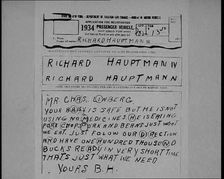 1934 PASSENGER VEHICLE
RICHARD HAUPTMANN
RICHARD HAUPTMANN
RICHARD HAUPTMANN
MR. CHAS. LINBERG
YOUR BABY IS SAFE BUT HE IS NOT
USING NO MEDICINES. HE IS EATING
PORK CHOPS AND BEANS JUST WHAT
WE EAT. JUST FOLLOW OUR DIRECTION
AND HAVE ONE HUNDRED THOUSAND
BUCKS READY IN VERY SHORT TIME
THAT'S JUST WHAT WE NEED
YOURS B.H.